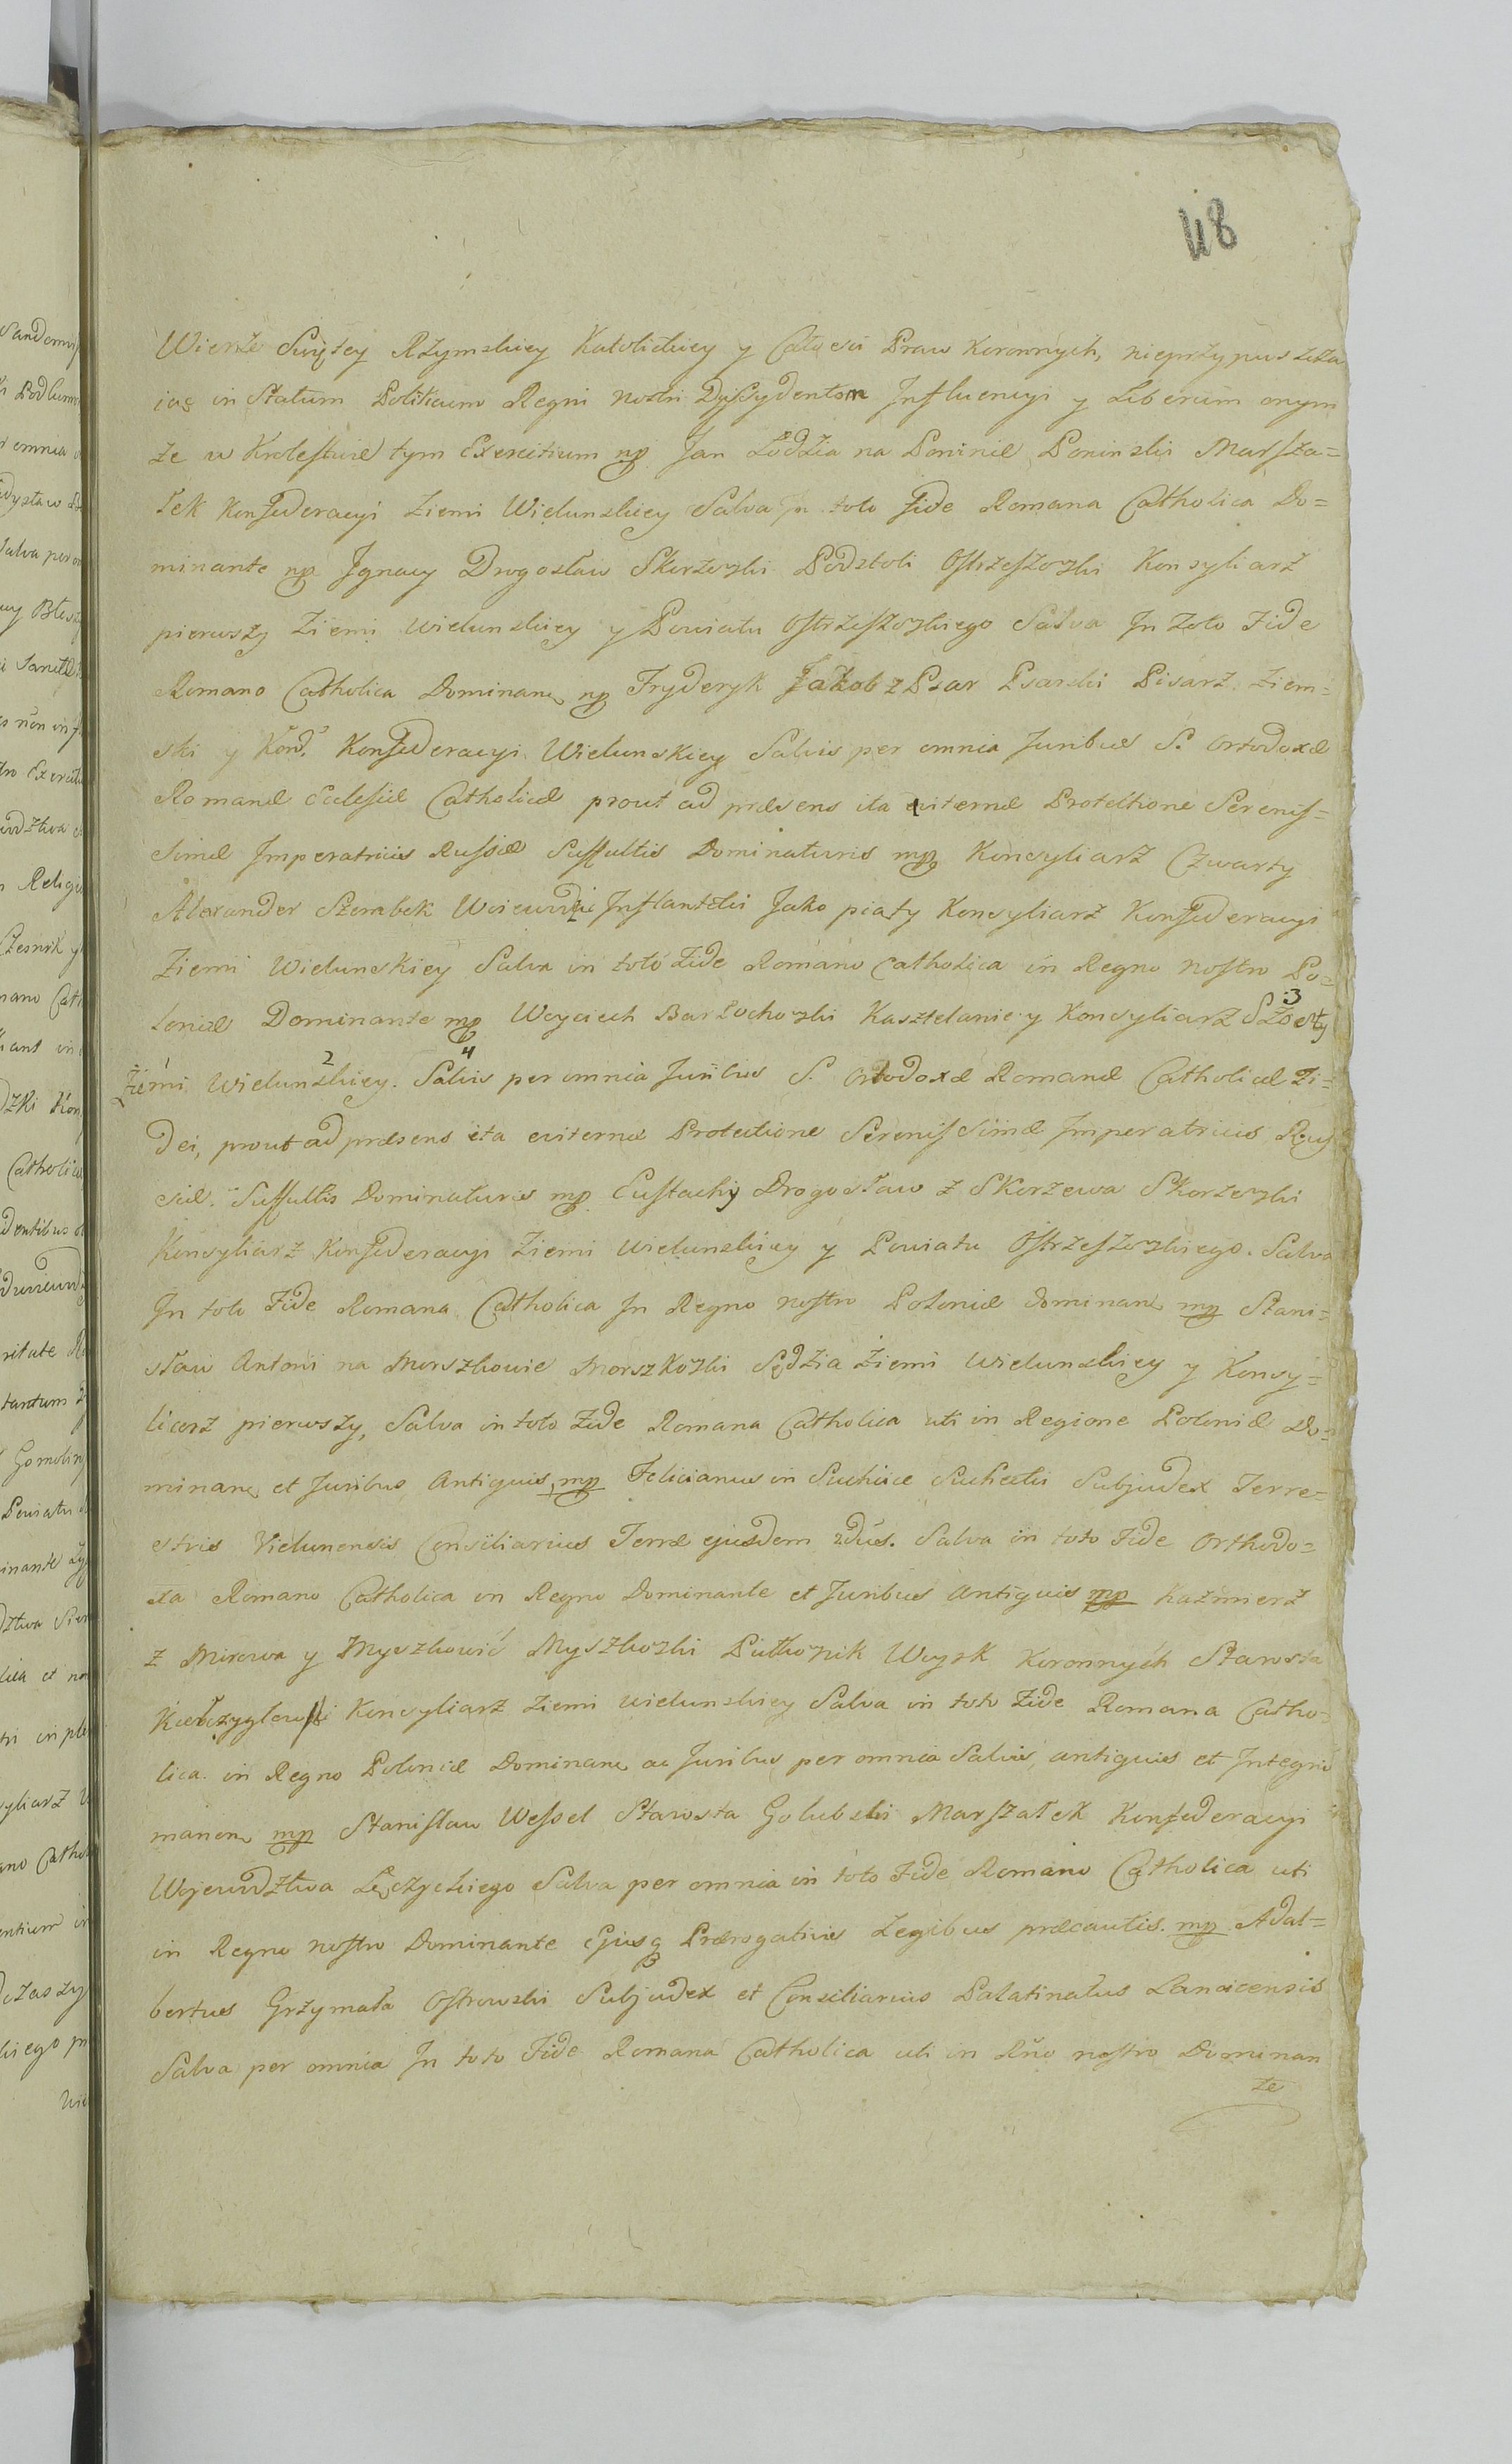 48
Wierze Swiętey Rzymskiey Katolickiey y Całosci Praw Koronnych, nieprzypuszcza
iąc in Statum Politicum Regni nostri Dyssydentom Influencyi y Liberum onym
że w Krolestwie tym Exercitium mp Jan Łodzia na Poninie Poninski Marsza=
łek Konfederacyi Ziemi Wielunskiey Salva In toto fide Romana Catholica Do=
minante mp Ignacy Drogosław Skorzewski Podstoli Ostrzeszowski Konsyliarz
pierwszy Ziemi Wielunskiey y Powiatu Ostrzeszowskiego Salva In toto Fide
Romano Catholica Dominan, mp Fryderyk Jakob z Psar Psarski Pisarz Ziem=
ski y Kons: Konfederacyi Wielunskiey Salvis per omnia Juribus S. Ortodoxæ
Romanæ Eclesiæ Catholicæ prout ad præsens ita eviternæ Protectione Serenis=
simæ Imperatricis Russiæ Suffultis Dominaturis mp Konsyliarz Czwarty
Alexander Szembek Woiewodzi Inflantski Jako piąty Konsyliarz Konfederacyi
Ziemi Wielunskiey Salva in toto Fide Romano Catholica in Regno nostro Po=
loniæ Dominante mp Woyciech Bartochowski Kasztelanic y Konsyliarz Szosty 3
Ziemi Wielunskiey. 2 Salvis 4 per omnia Juribus S. Ortodoxæ Romanæ Catholicæ Fi=
dei, prout ad præsens ita eviternæ Protectione Serenissimæ Imperatricis Rus
siæ. Suffultis Dominaturis mp Eustachy Drogosław z Skorzewa Skorzewski
Konsyliarz Konfederacyi Ziemi Wielunskiey y Powiatu Ostrzeszowskiego. Salva
In toto Fide Romana Catholica In Regno nostro Poloniæ Dominan, mp Stani=
sław Antoni na Morszkowie Morszkowski Sędzia Ziemi Wielunskiey y Konsy=
liarz pierwszy, Salva in toto Fide Romana Catholica uti in Regione Poloniæ Do=
minan, et Juribus Antiquis, mp Felicianus in Suchcice Suchecki Subjudex Terre=
stris Vielunensis Consiliarius Terræ ejusdem 2dus. Salva in toto Fide Orthodo=
xa Romano Catholica in Regno Dominante et Juribus Antiquis mp Kazimierz
z Mirowa y Myszkowic Myszkowski Pułkownik Woysk Koronnych Starosta
Kiełczyglowski Konsyliarz Ziemi Wielunskiey Salva in toto Fide Romana Catho=
lica. in Regno Poloniæ Dominan, ac Juribus per omnia Salvis, antiquis et Integris
manen, mp Stanislaw Wessel Starosta Golubski Marszałek Konfederacyi
Wojewodztwa Łęczyckiego Salva per omnia in toto Fide Romano Catholica uti
in Regno nostro Dominante Ejusq Prærogativis Legibus præcautis. mp Adal=
bertus Grzymała Ostrowski Subjudex et Consiliarius Palatinatus Lancicensis
Salva per omnia In toto Fide Romana Catholica uti in Rno nostro Dominan
te